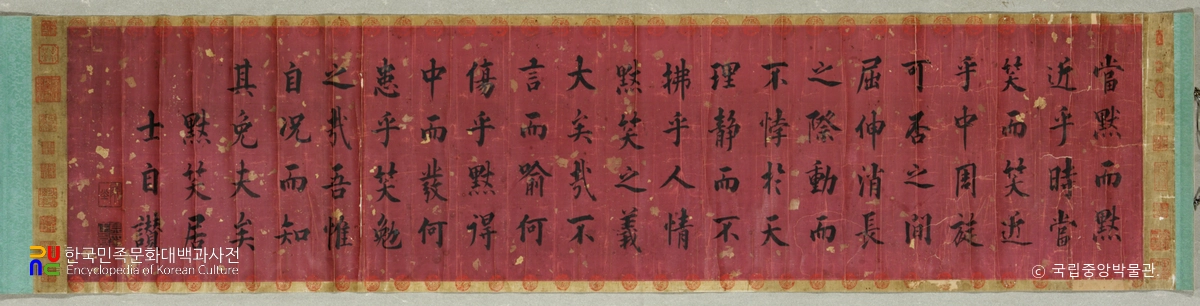 當默而默
近乎時當
笑而笑近
乎中周旋
可否之間
屈伸消長
之際動而
不悖於天
理静而不
拂乎人情
默笑之義
大矣哉不
言而喻何
傷乎默得
中而發何
患乎笑勉
之哉吾惟
自况而知
其免夫矣
默笑居
士自讚
한국민족문화대백과사전
Encyclopedia of Korean Culture
ⓒ 국립중앙박물관.